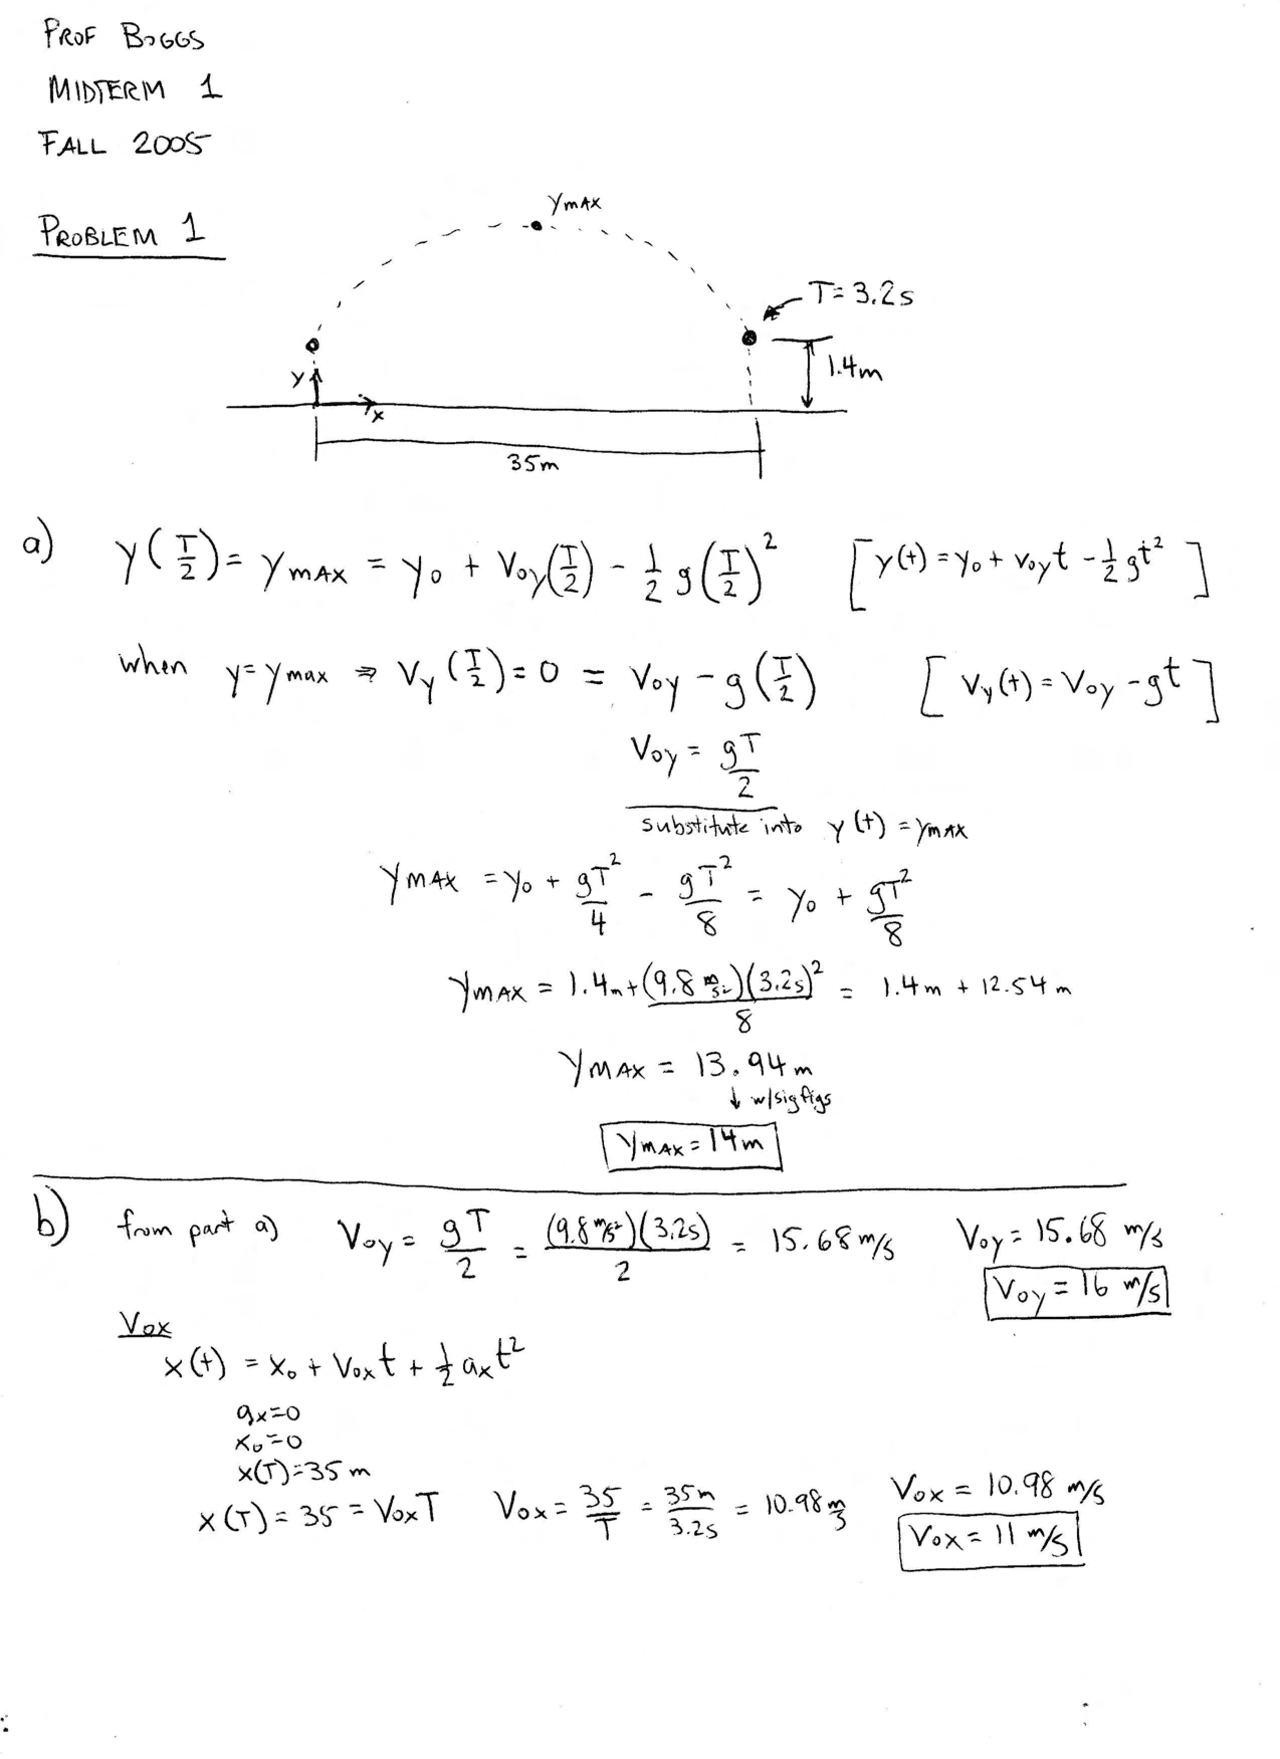 PROF BOGGS
MIDTERM 1
FALL 2005
PROBLEM 1
YMAX
T=3.2s
1.4m
y
x
35m
a) y(T/2) = yMAX = y₀ + Voy(T/2) - 1/2 g(T/2)² [y(t) = y₀ + voyt - 1/2 gt²]
when y=ymax ⇒ Vy(T/2)=0 = Voy - g(T/2) [Vy(t) = Voy - gt]
Voy = gT/2
substitute into y(t) = yMAX
yMAX = y₀ + gT²/4 - gT²/8 = y₀ + gT²/8
yMAX = 1.4m + (9.8 m/s²)(3.2s)²/8 = 1.4m + 12.54m
yMAX = 13.94m
↓ w/sigfigs
yMAX = 14m
b) from part a) Voy = gT/2 = (9.8 m/s²)(3.2s)/2 = 15.68 m/s Voy = 15.68 m/s
Voy = 16 m/s
Vox
x(t) = x₀ + Voxt + 1/2 axt²
ax=0
x₀=0
x(T)=35m
x(T) = 35 = VoxT Vox = 35/T = 35m/3.2s = 10.98 m/s Vox = 10.98 m/s
Vox = 11 m/s